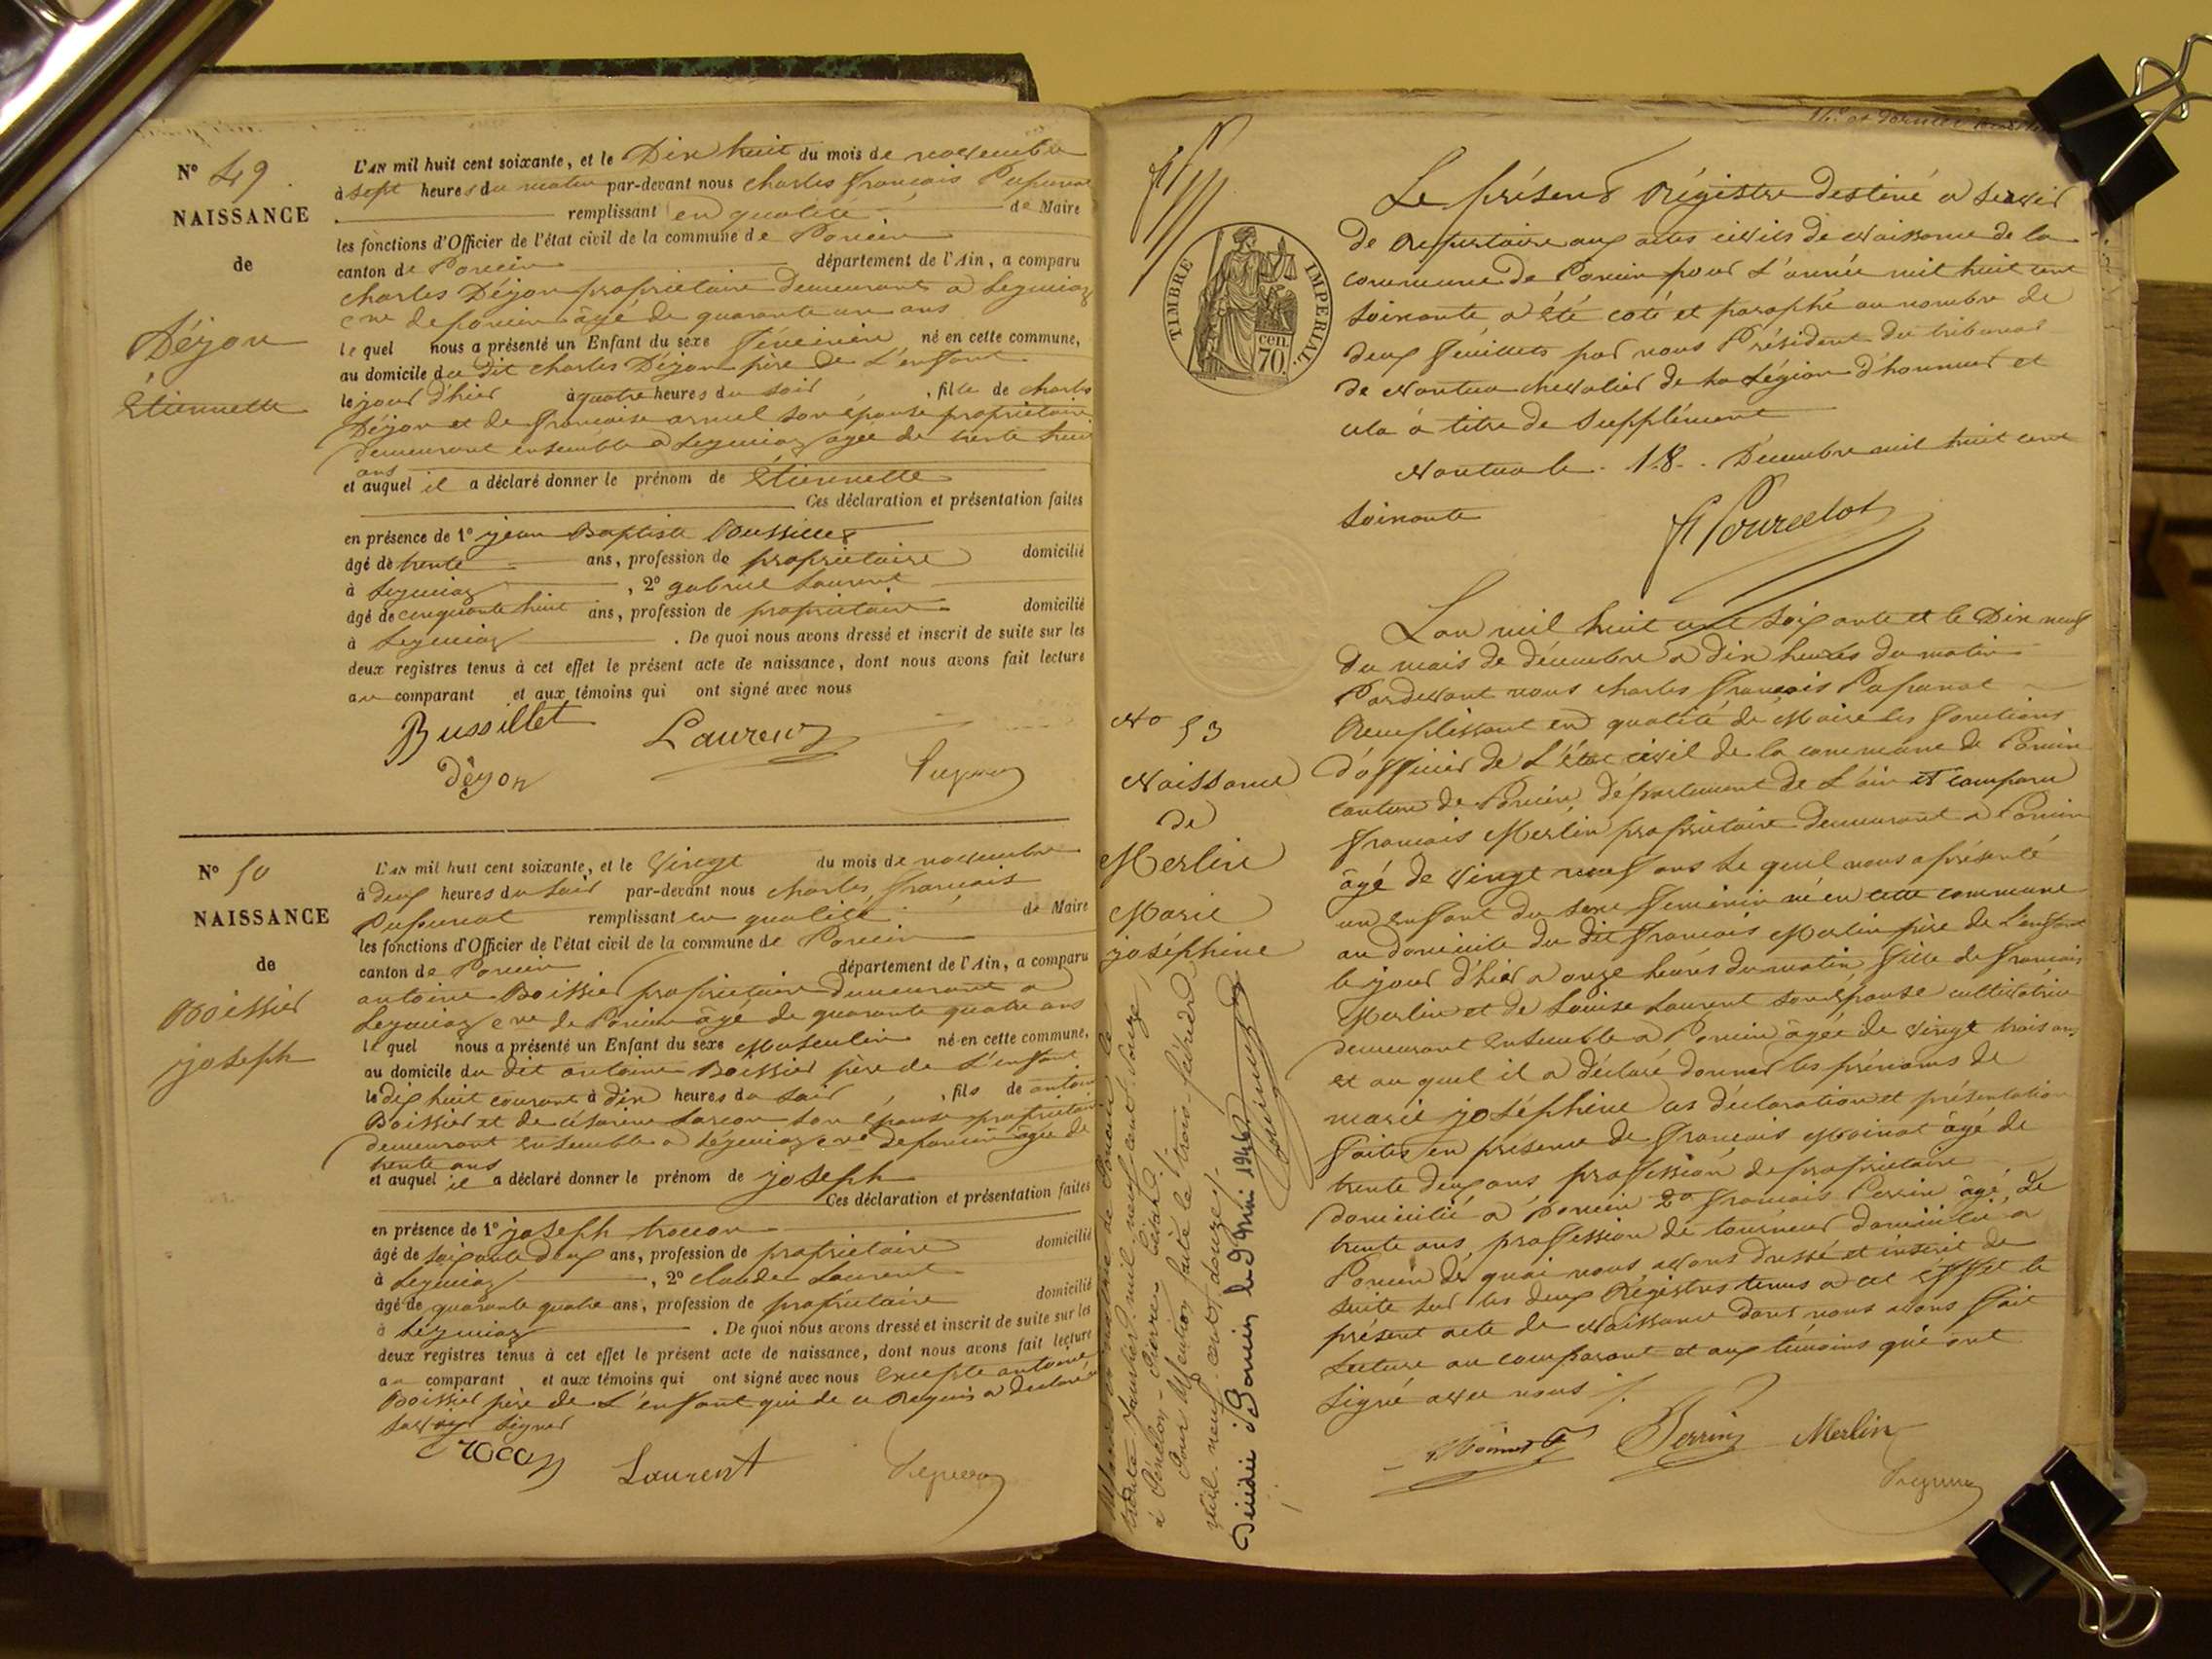 N° 49
NAISSANCE
de
Déjon
Étiennette
L'AN mil huit cent soixante, et le Dix huit du mois de novembre
à sept heures du matin par-devant nous charles françois
remplissant en qualité de Maire
les fonctions d'Officier de l'état civil de la commune de Poncin
canton de Poncin département de l'Ain, a comparu
charles Déjon propriétaire demeurant a Leymiaz
cne de poncin âgé de quarante un ans
lequel nous a présenté un Enfant du sexe féminin né en cette commune,
au domicile du dit charles Déjon père de L'enfant
le jour d'hier à quatre heures du soir, fille de charles
Déjon et de françoise son épouse propriétaire
demeurant ensemble a Leymiaz agée de trente
ans
et auquel il a déclaré donner le prénom de Étiennette
Ces déclaration et présentation faites
en présence de 1° jean Baptiste Bussillet
âgé de trente ans, profession de propriétaire domicilié
à Leymiaz, 2° gabriel Laurent
âgé de cinquante huit ans, profession de propriétaire domicilié
à Leymiaz. De quoi nous avons dressé et inscrit de suite sur les
deux registres tenus à cet effet le présent acte de naissance, dont nous avons fait lecture
au comparant et aux témoins qui ont signé avec nous
Bussillet Laurent
Déjon
N° 50
NAISSANCE
de
Boissier
joseph
L'AN mil huit cent soixante, et le vingt du mois de novembre
à deux heures du soir par-devant nous charles françois
remplissant en qualité de Maire
les fonctions d'Officier de l'état civil de la commune de Poncin
canton de Poncin département de l'Ain, a comparu
antoine Boissier propriétaire demeurant a
Leymiaz cne de Poncin âgé de quarante quatre ans
lequel nous a présenté un Enfant du sexe Masculin né en cette commune,
au domicile du dit antoine Boissier père de L'enfant
le dix huit courant à dix heures du soir, fils de antoine
Boissier et de césarine son épouse propriétaire
demeurant ensemble a Leymiaz cne de poncin âgée de
trente ans
et auquel il a déclaré donner le prénom de joseph
Ces déclaration et présentation faites
en présence de 1° joseph trocon
âgé de soixante deux ans, profession de propriétaire domicilié
à Leymiaz, 2° claude Laurent
âgé de quarante quatre ans, profession de propriétaire domicilié
à Leymiaz. De quoi nous avons dressé et inscrit de suite sur les
deux registres tenus à cet effet le présent acte de naissance, dont nous avons fait lecture
au comparant et aux témoins qui ont signé avec nous excepté antoine
Boissier père de L'enfant qui de ce requis a déclaré
savoir signer
trocon Laurent
et dernier
TIMBRE IMPERIAL
70 cen.
Le présent Régistre destiné a servir
de répertoire aux actes civils de Naissance de la
commune de Poncin pour L'année mil huit cent
soixante, a été coté et paraphé au nombre de
deux feuillets par nous Président du tribunal
de Nantua chevalier de la Légion d'honneur et
cela à titre de supplément
Nantua le 18 Décembre mil huit cent
soixante
N° 53
Naissance
de
Merlin
Marie
joséphine
L'an mil huit cent soixante et le Dix neuf
du mois de décembre a dix heures du matin
Pardevant nous charles françois
Remplissant en qualité de Maire les fonctions
d'officier de L'état civil de la commune de Poncin
canton de Poncin, département de L'ain et comparu
françois Merlin propriétaire demeurant a Poncin
âgé de vingt neuf ans Le quel nous a présenté
un enfant du sexe féminin né en cette commune
au domicile du dit françois Merlin père de L'enfant
le jour d'hier a onze heures du matin, fille de françois
Merlin et de Louise Laurent son épouse cultivatrice
demeurant ensemble a Poncin âgée de vingt trois ans
et au quel il a déclaré donner les prénoms de
marie joséphine ces déclaration et présentation
faites en présence de françois Moinat âgé de
trente deux ans profession de propriétaire
domicilié a Poncin 2° françois Perrin âgé de
trente ans, profession de tourneur domicilié a
Poncin de quoi nous avons dressé et inscrit de
suite sur les deux Régistres tenus a cet effet le
présent acte de Naissance dont nous avons fait
Lecture au comparant et aux témoins qui ont
signé avec nous
Perrin Merlin
trente janvier mil neuf cent douze,
Pour Mention faite le trois février
mil neuf cent douze
Décédée à Poncin le 9 1946